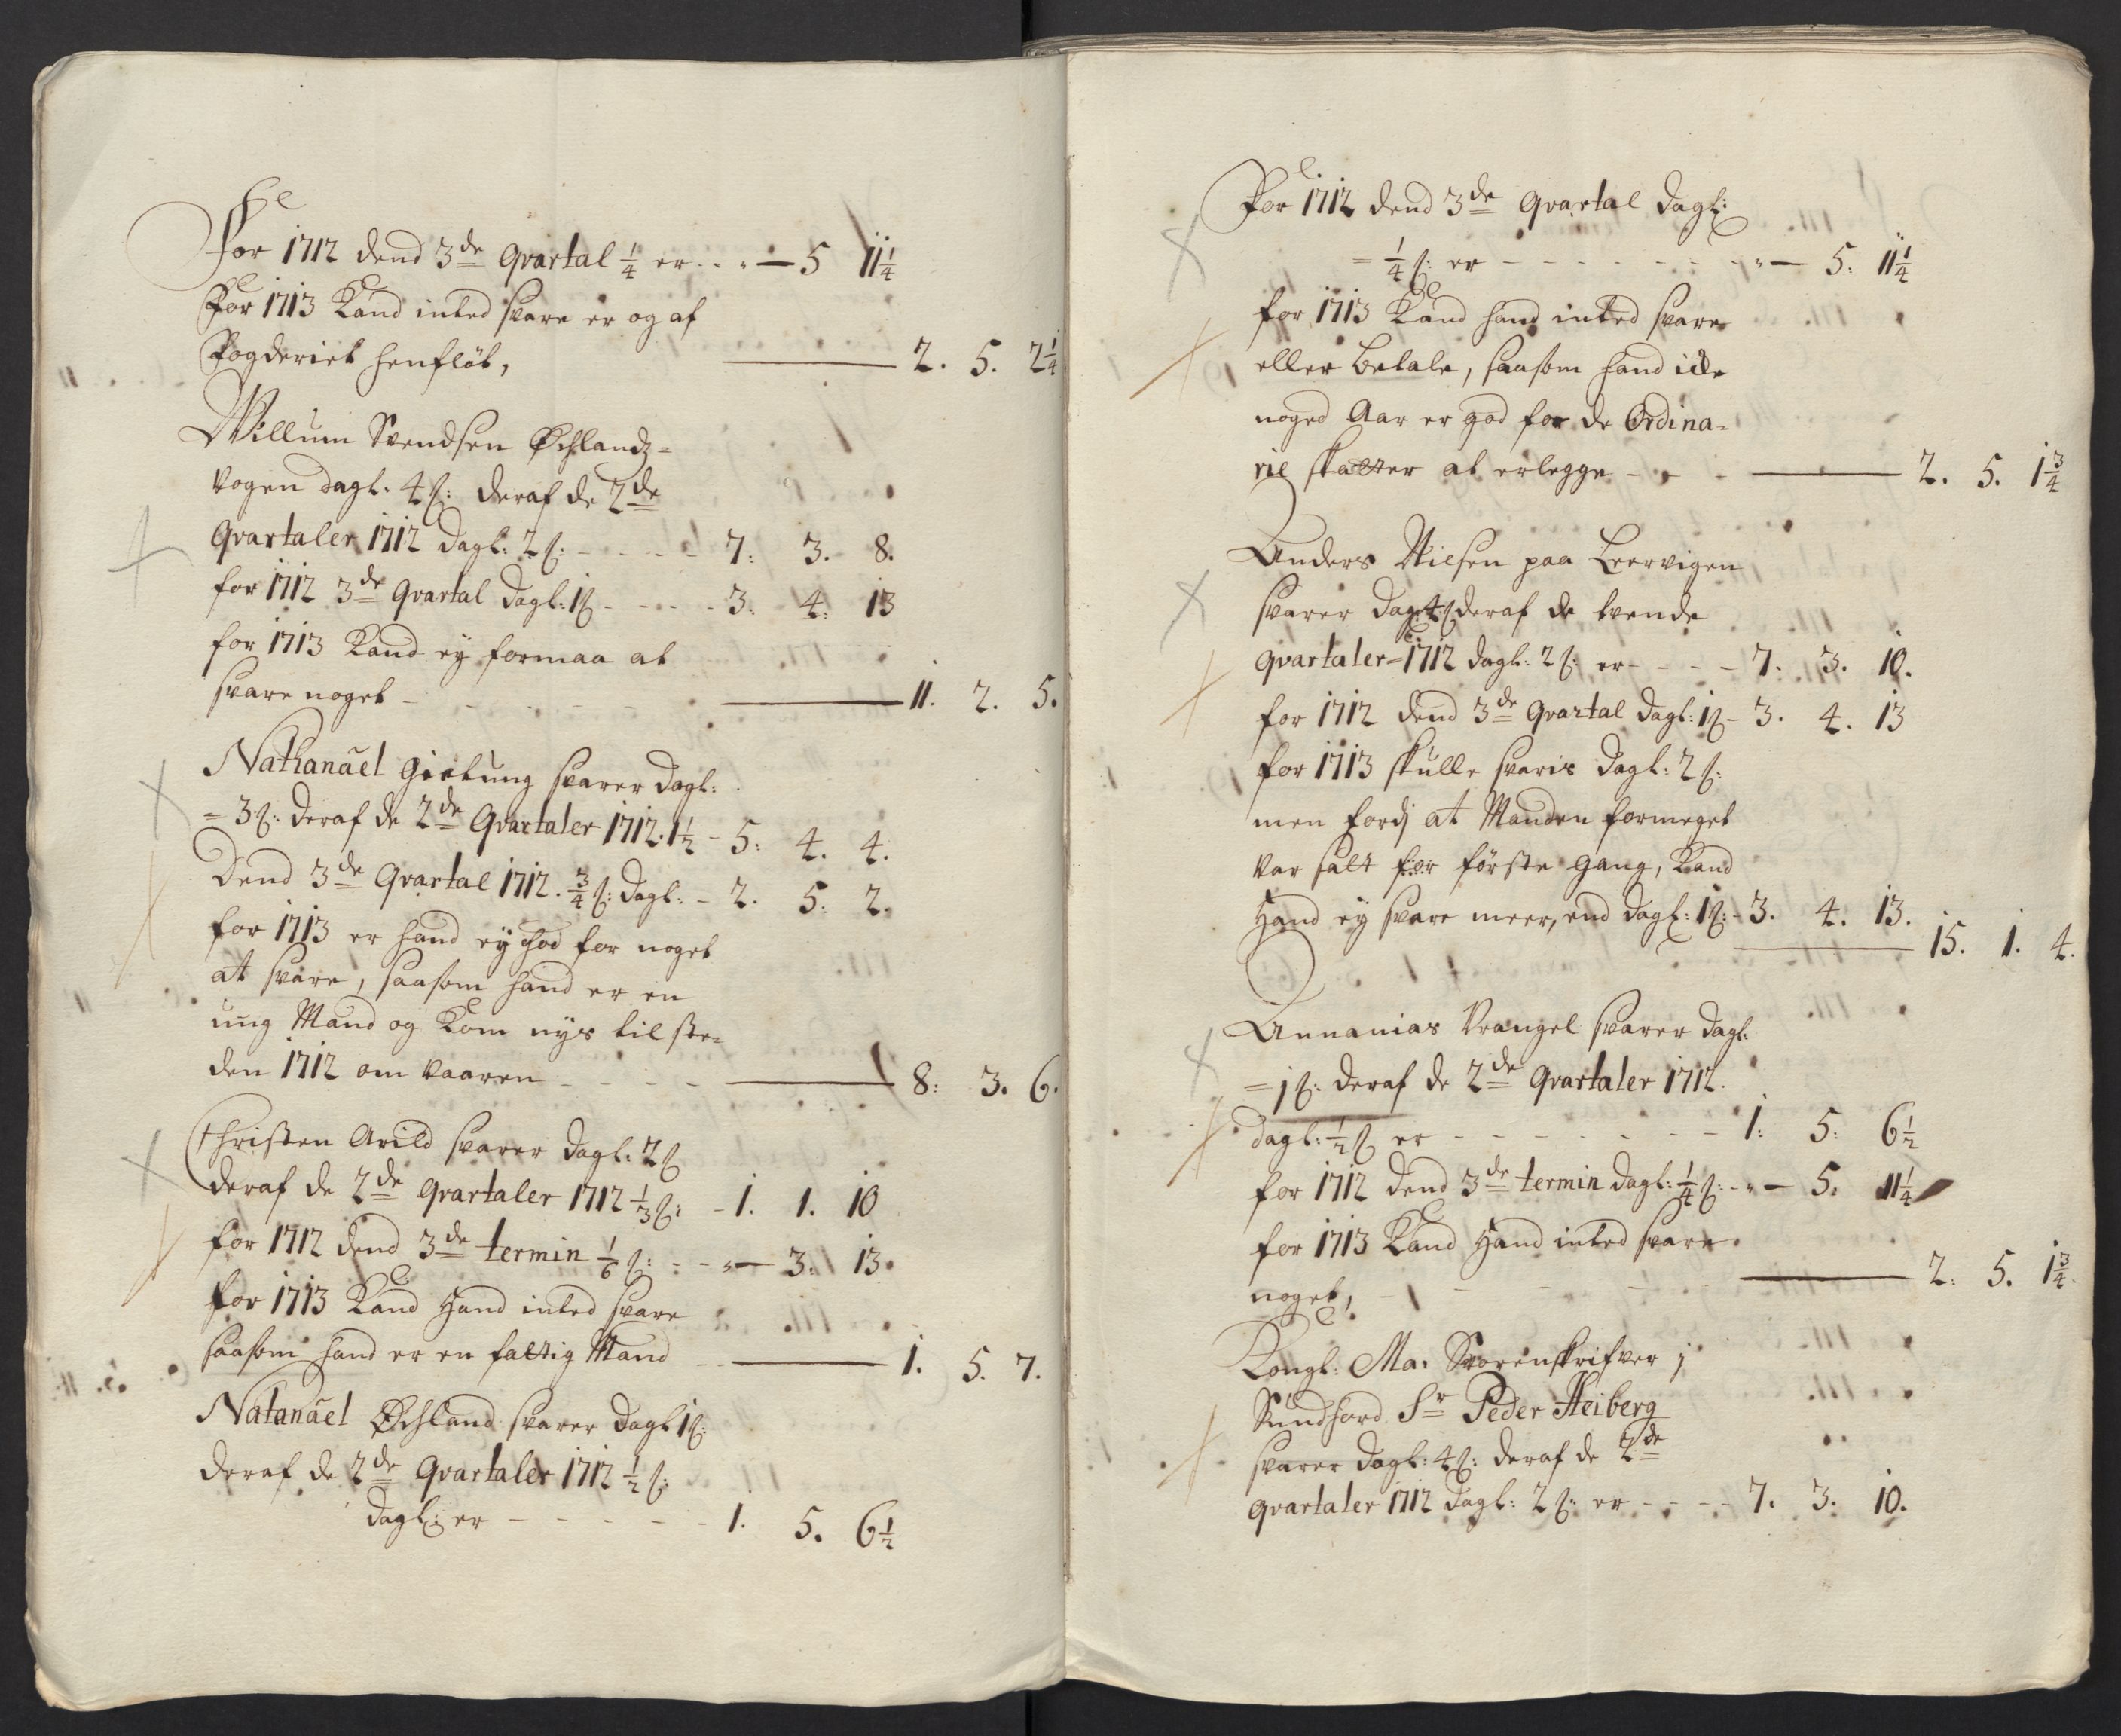 For 1712 dend 3de Qvartal 1/4 er - - " — 5 11 1/4
For 1713 Kand inted svare er og af
Fogderiet henfløt, — 2. 5. 2 1/4
Willum Svendsen Øchlandz-
vogen dagl. 4 s: deraf de 2de
Qvartaler 1712 dagl: 2 s: - - - - 7: 3. 8.
for 1712 3de Qvartal dagl: 1 s - - - - 3: 4: 13
for 1713 Kand ey formaa at
svare noget - - - — 11. 2. 5.
Nathanäel svarer dagl:
= 3 s: deraf de 2de Qvartaler 1712. 1 1/2 - 5: 4. 4.
Dend 3de Qvartal 1712. 3/4 s: dagl: - 2. 5: 2.
for 1713 er hand ey god for noget
at svare, saasom hand er en
ung Mand og Kom nys til ste-
den 1712 om Vaaren - - - — 8: 3. 6.
Christen Arild svarer dagl: 2 s
deraf de 2de Qvartaler 1712 1/3 s: - 1. 1. 10
for 1712 dend 3de termin 1/6 s: - - " — 3: 13.
for 1713 Kand Hand inted svare
saasom hand er en fattig Mand - — 1. 5. 7.
Natanäel Øchland svarer dagl 1 s:
deraf de 2de Qvartaler 1712 1/2 s:
dagl: er - - - - - 1. 5. 6 1/2
For 1712 dend 3de Qvartal dagl:
= 1/4 s: er - - - - - - - " — 5: 11 1/4
for 1713 Kand hand inted svare
eller betale, saasom hand icke
noged Aar er god for de Ordina-
rie skatter at erlegge - - - — 2. 5. 1 3/4
Anders Nielsen paa Leervigen
svarer dagl: 4 s deraf de tvende
Qvartaler = 1712 dagl: 2 s: er - - - - 7: 3. 10.
for 1712 dend 3de Qvartal dagl: 1 s - 3. 4. 13
for 1713 skulle svaris dagl: 2 s:
men fordj at Manden formeget
var satt for förste gang, Kand
Hand ey svare meer, end dagl: 1 s: - 3. 4. 13.
— 15. 1. 4.
Annanias Vrangel svarer dagl:
= 1 s: deraf de 2de Qvartaler 1712.
dagl: 1/2 s er - - - - - - - 1: 5: 6 1/2
for 1712 dend 3de termin dagl: 1/4 s: - " — 5. 11 1/4
for 1713 Kand Hand inted svare
noget, - - - - — 2: 5. 1 3/4
Kongl: Ma. Sorenskrifver j
Sundfiord Sr Peder Heiberg
svarer dagl: 4 s: deraf de 2de
Qvartaler 1712 dagl: 2 s: er - - - - 7. 3: 10.